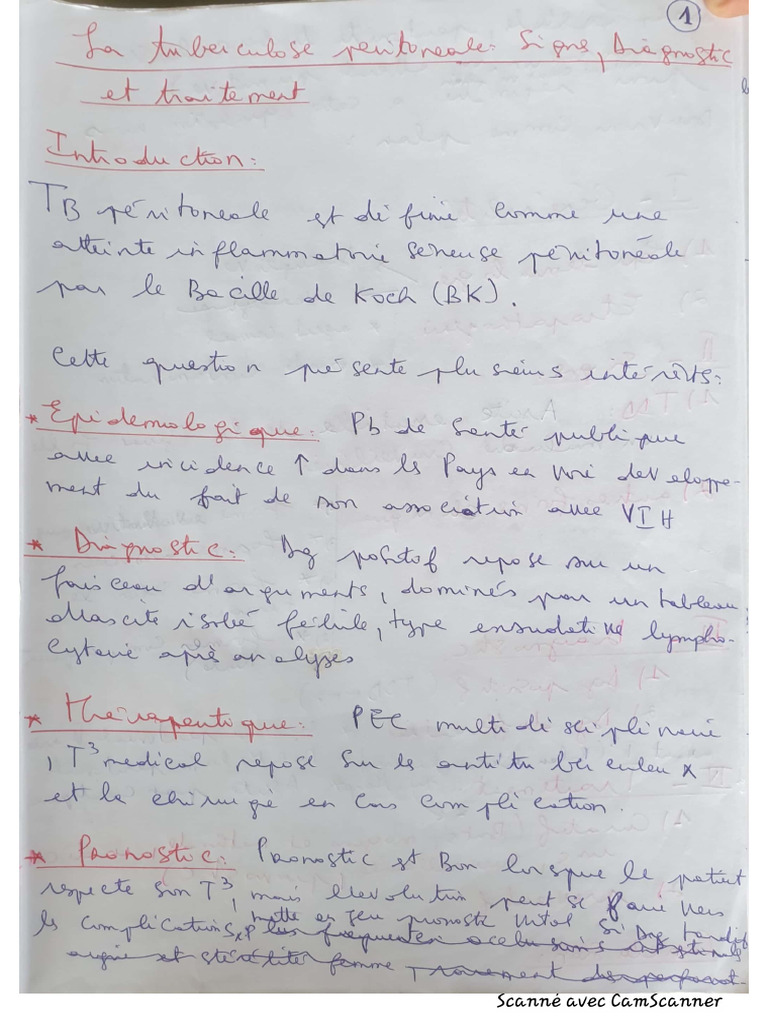 1
La tuberculose peritoneale: Signs, Diagnostic
et traitement
Introduction:
TB péritoneale est définie comme une
atteinte inflammatoire sereuse péritonéale
par le Bacille de Koch (BK).
Cette question présente plusieurs intérêts:
* Epidemologique: Pb de Santé publique
avec incidence ↑ dans les Pays en voie developpe-
ment du fait de son association avec VIH
* Diagnostic: Dg positif repose sur un
faisceau d'arguments, dominés par un tableau
d'ascite isolée fébrile, type exsudative lympho-
cytaire après analyses
* Thérapeutique: PEC multidisciplinaire
, T³ medical repose sur les antituberculeux
et la chirurgie en cas complication.
* Pronostic: Pronostic est Bon lorsque le patient
respecte son T³, mais l'evolution peut se faire vers
les complications, mettre en jeu pronostic vital si Dg tardif
aigue et stérilité femme
Scanné avec CamScanner